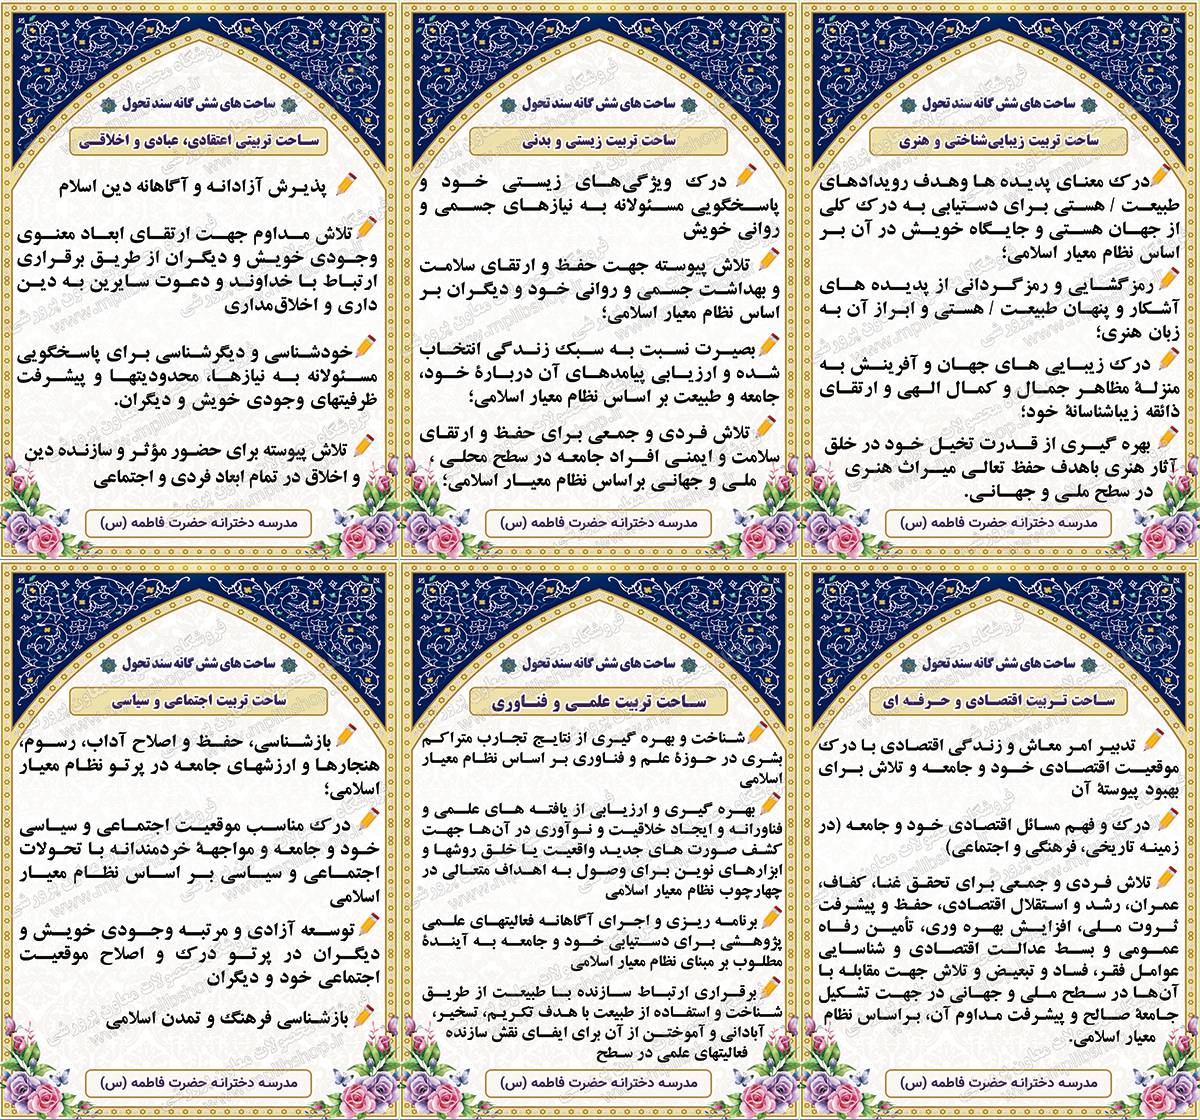 ساحت های شش گانه سند تحول
ساحت تربیت زیبایی‌شناختی و هنری
درک معنای پدیده ها وهدف رویدادهای
طبیعت / هستی برای دستیابی به درک کلی
از جهان هستی و جایگاه خویش در آن بر
اساس نظام معیار اسلامی؛
رمزگشایی و رمزگردانی از پدیده های
آشکار و پنهان طبیعت / هستی و ابراز آن به
زبان هنری؛
درک زیبایی های جهان و آفرینش به
منزلهٔ مظاهر جمال و کمال الهی و ارتقای
ذائقه زیباشناسانهٔ خود؛
بهره گیری از قدرت تخیل خود در خلق
آثار هنری باهدف حفظ تعالی میراث هنری
در سطح ملی و جهانی.
مدرسه دخترانه حضرت فاطمه (س)
ساحت های شش گانه سند تحول
ساحت تربیت زیستی و بدنی
درک ویژگی‌های زیستی خود و
پاسخگویی مسئولانه به نیازهای جسمی و
روانی خویش
تلاش پیوسته جهت حفظ و ارتقای سلامت
و بهداشت جسمی و روانی خود و دیگران بر
اساس نظام معیار اسلامی؛
بصیرت نسبت به سبک زندگی انتخاب
شده و ارزیابی پیامدهای آن دربارهٔ خود،
جامعه و طبیعت بر اساس نظام معیار اسلامی؛
تلاش فردی و جمعی برای حفظ و ارتقای
سلامت و ایمنی افراد جامعه در سطح محلی ،
ملی و جهانی براساس نظام معیار اسلامی؛
مدرسه دخترانه حضرت فاطمه (س)
ساحت های شش گانه سند تحول
ساحت تربیتی اعتقادی، عبادی و اخلاقی
پذیرش آزادانه و آگاهانه دین اسلام
تلاش مداوم جهت ارتقای ابعاد معنوی
وجودی خویش و دیگران از طریق برقراری
ارتباط با خداوند و دعوت سایرین به دین
داری و اخلاق‌مداری
خودشناسی و دیگرشناسی برای پاسخگویی
مسئولانه به نیازها، محدودیتها و پیشرفت
ظرفیتهای وجودی خویش و دیگران.
تلاش پیوسته برای حضور مؤثر و سازنده دین
و اخلاق در تمام ابعاد فردی و اجتماعی
مدرسه دخترانه حضرت فاطمه (س)
ساحت های شش گانه سند تحول
ساحت تربیت اقتصادی و حرفه ای
تدبیر امر معاش و زندگی اقتصادی با درک
موقعیت اقتصادی خود و جامعه و تلاش برای
بهبود پیوستهٔ آن
درک و فهم مسائل اقتصادی خود و جامعه (در
زمینه تاریخی، فرهنگی و اجتماعی)
تلاش فردی و جمعی برای تحقق غنا، کفاف،
عمران، رشد و استقلال اقتصادی، حفظ و پیشرفت
ثروت ملی، افزایش بهره وری، تأمین رفاه
عمومی و بسط عدالت اقتصادی و شناسایی
عوامل فقر، فساد و تبعیض و تلاش جهت مقابله با
آن‌ها در سطح ملی و جهانی در جهت تشکیل
جامعهٔ صالح و پیشرفت مداوم آن، براساس نظام
معیار اسلامی.
مدرسه دخترانه حضرت فاطمه (س)
ساحت های شش گانه سند تحول
ساحت تربیت علمی و فناوری
شناخت و بهره گیری از نتایج تجارب متراکم
بشری در حوزهٔ علم و فناوری بر اساس نظام معیار
اسلامی
بهره گیری و ارزیابی از یافته های علمی و
فناورانه و ایجاد خلاقیت و نوآوری در آن‌ها جهت
کشف صورت های جدید واقعیت یا خلق روشها و
ابزارهای نوین برای وصول به اهداف متعالی در
چهارچوب نظام معیار اسلامی
برنامه ریزی و اجرای آگاهانه فعالیتهای علمی
پژوهشی برای دستیابی خود و جامعه به آیندهٔ
مطلوب بر مبنای نظام معیار اسلامی
برقراری ارتباط سازنده با طبیعت از طریق
شناخت و استفاده از طبیعت با هدف تکریم، تسخیر،
آبادانی و آموختن از آن برای ایفای نقش سازنده
فعالیتهای علمی در سطح
مدرسه دخترانه حضرت فاطمه (س)
ساحت های شش گانه سند تحول
ساحت تربیت اجتماعی و سیاسی
بازشناسی، حفظ و اصلاح آداب، رسوم،
هنجارها و ارزشهای جامعه در پرتو نظام معیار
اسلامی؛
درک مناسب موقعیت اجتماعی و سیاسی
خود و جامعه و مواجههٔ خردمندانه با تحولات
اجتماعی و سیاسی بر اساس نظام معیار
اسلامی
توسعه آزادی و مرتبه وجودی خویش و
دیگران در پرتو درک و اصلاح موقعیت
اجتماعی خود و دیگران
بازشناسی فرهنگ و تمدن اسلامی
مدرسه دخترانه حضرت فاطمه (س)